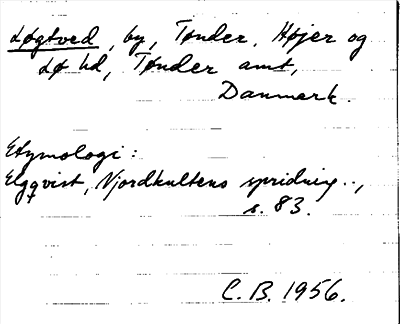 Løgtved, by, Tønder, Højer og
Lø hd, Tønder amt,
Danmark.
Etymologi:
Elgqvist, Njordkultens spridning..,
s. 83.
C. B. 1956.